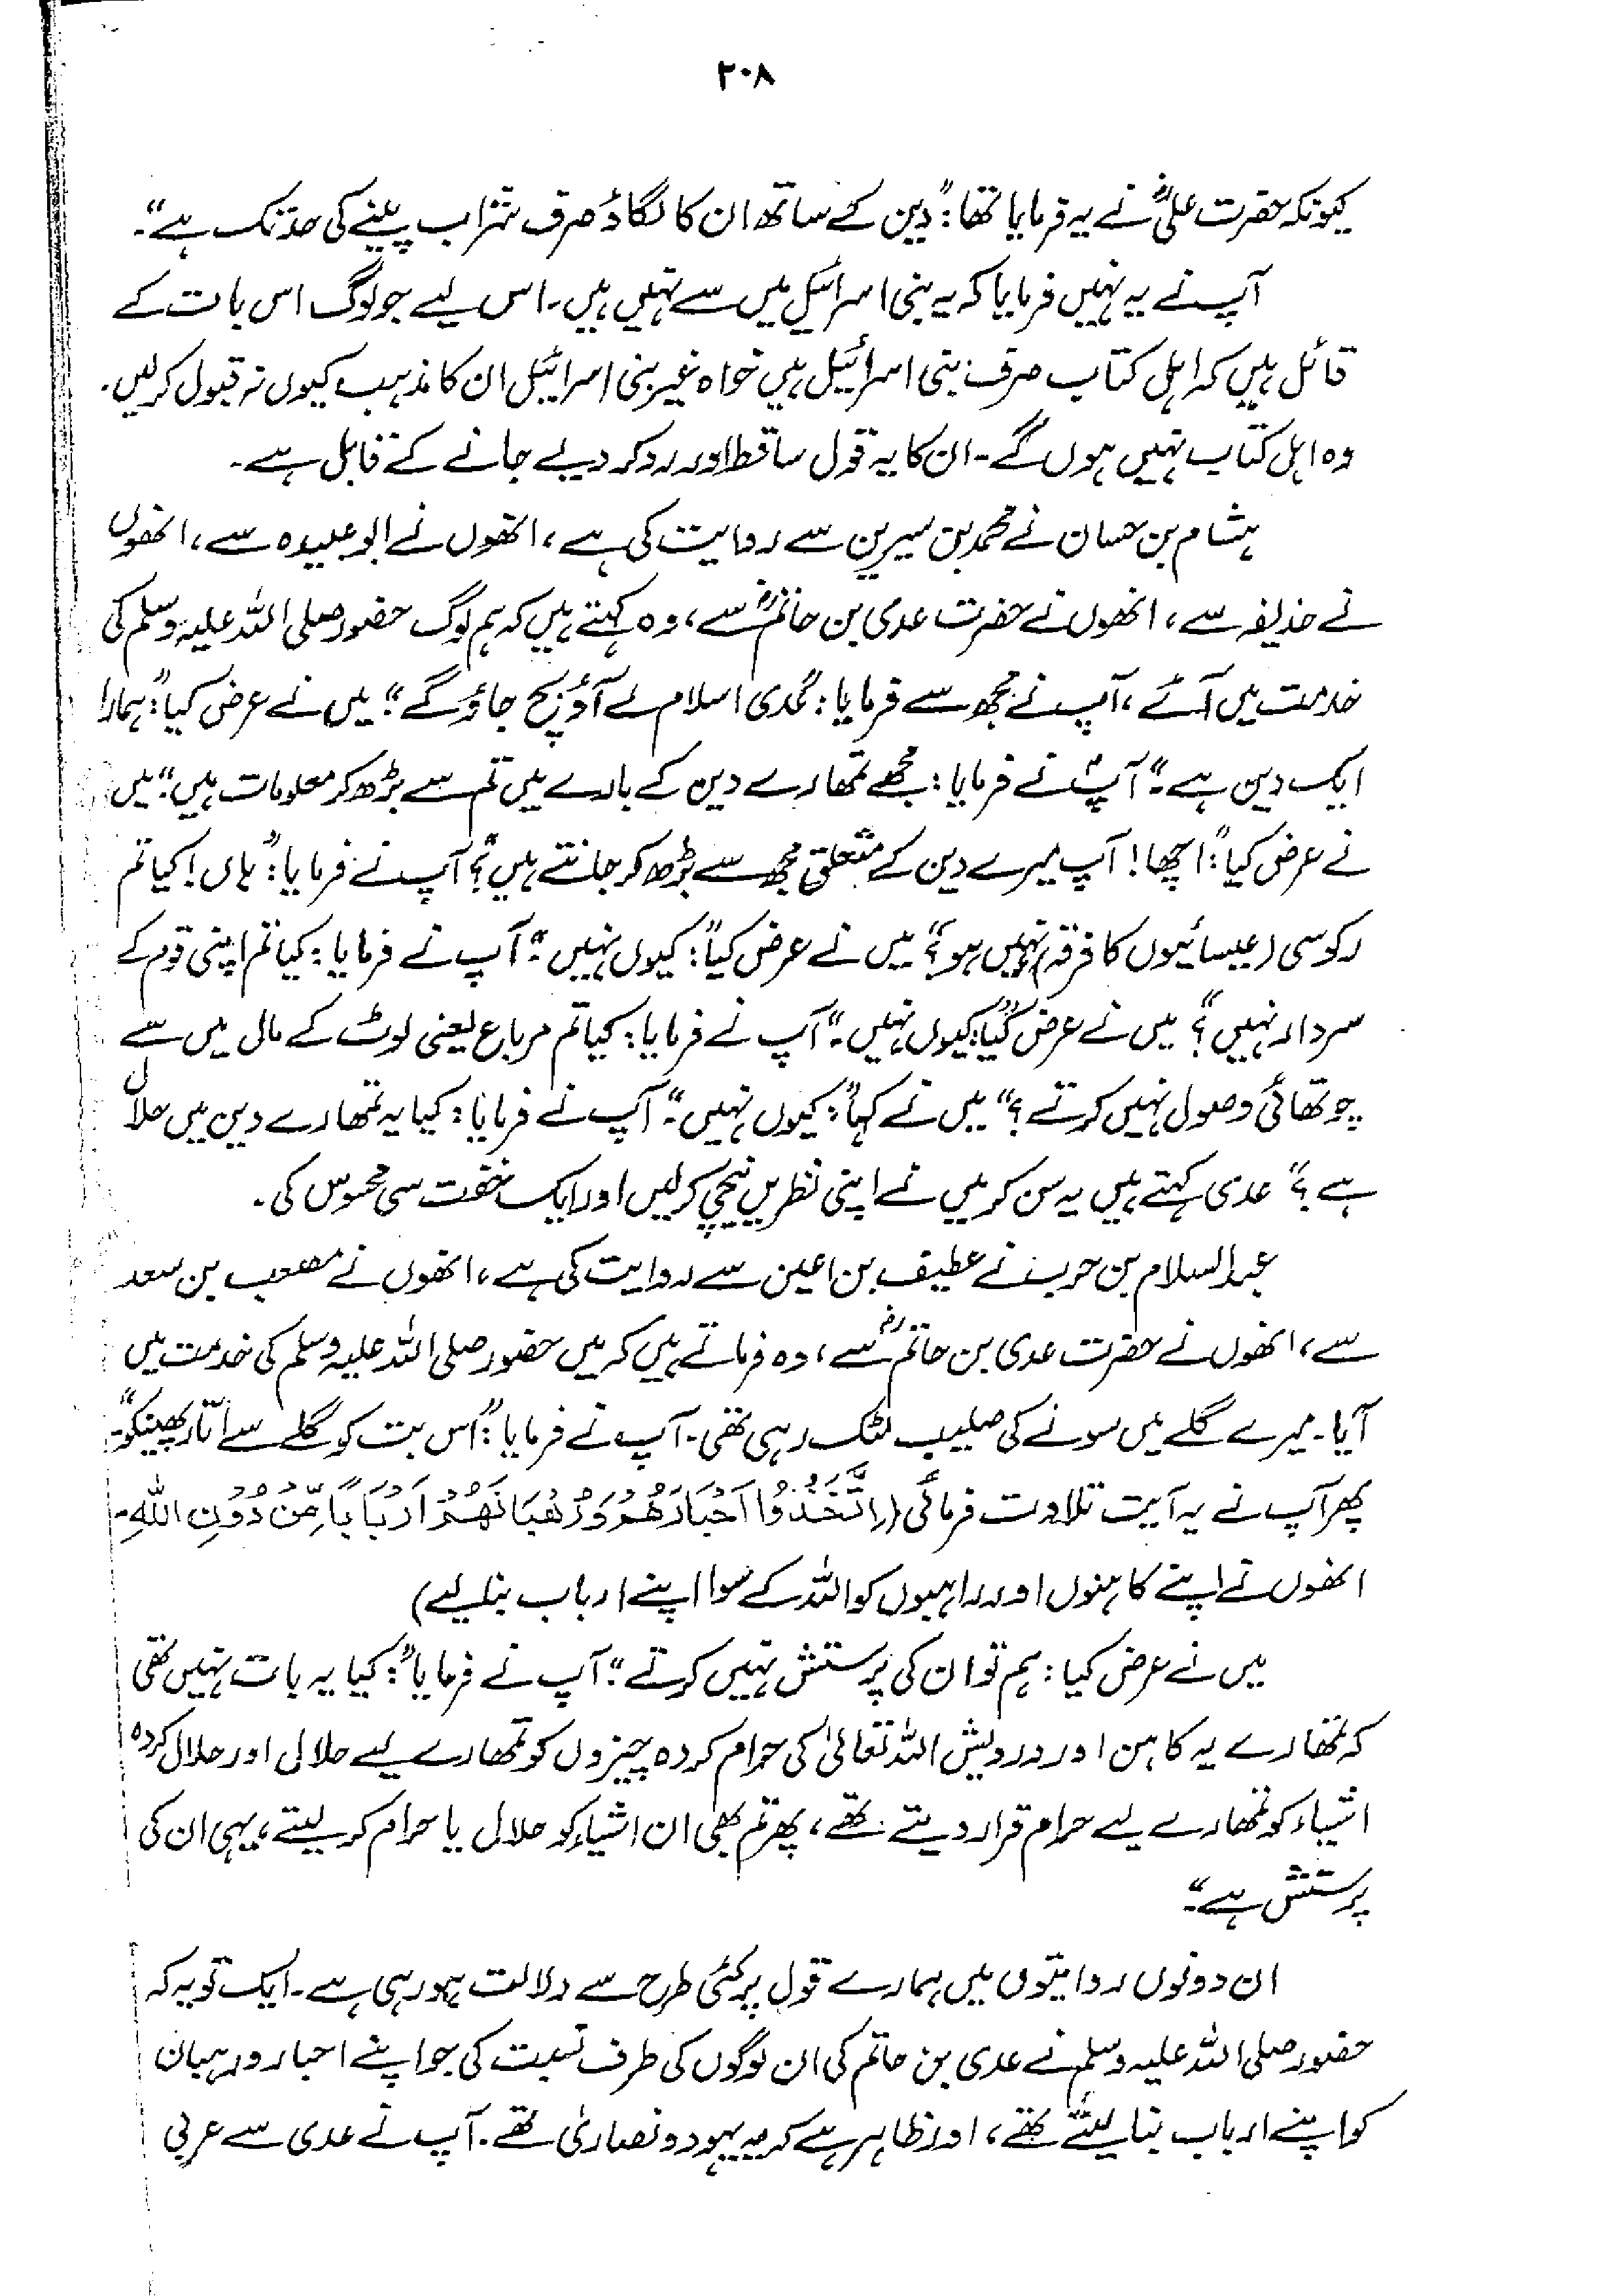 ۲۰۸
کیونکہ حضرت علیؓ نے یہ فرمایا تھا: "دین کے ساتھ ان کا لگاؤ صرف شراب پینے کی حد تک ہے"۔
آپ نے یہ نہیں فرمایا کہ یہ بنی اسرائیل میں سے نہیں ہیں۔ اس لیے جو لوگ اس بات کے
قائل ہیں کہ اہل کتاب صرف بنی اسرائیل ہیں خواہ غیر بنی اسرائیل ان کا مذہب کیوں نہ قبول کر لیں۔
وہ اہل کتاب نہیں ہوں گے۔ ان کا یہ قول ساقط اور رد کر دیے جانے کے قابل ہے۔
ہشام بن حسان نے محمد بن سیرین سے روایت کی ہے، انھوں نے ابو عبیدہ سے، انھوں
نے حذیفہ سے، انھوں نے حضرت عدی بن حاتمؓ سے، وہ کہتے ہیں کہ ہم لوگ حضور صلی اللہ علیہ وسلم کی
خدمت میں آئے، آپ نے مجھ سے فرمایا: "عدی اسلام لے آؤ بچ جاؤ گے" میں نے عرض کیا: "ہمارا
ایک دین ہے"۔ آپؐ نے فرمایا: مجھے تمھارے دین کے بارے میں تم سے بڑھ کر معلومات ہیں" میں
نے عرض کیا: "اچھا! آپ میرے دین کے متعلق مجھ سے بڑھ کر جانتے ہیں؟" آپ نے فرمایا: "ہاں! کیا تم
رکوسی (عیسائیوں کا فرقہ) نہیں ہو؟" میں نے عرض کیا: "کیوں نہیں"۔ آپ نے فرمایا: کیا تم اپنی قوم کے
سردار نہیں؟" میں نے عرض کیا: "کیوں نہیں"۔ آپ نے فرمایا: کیا تم مرباع یعنی لوٹ کے مال میں سے
چوتھائی وصول نہیں کرتے؟" میں نے کہا: "کیوں نہیں"۔ آپ نے فرمایا: کیا یہ تمھارے دین میں حلال
ہے؟" عدی کہتے ہیں یہ سن کر میں نے اپنی نظریں نیچی کر لیں اور ایک خفت سی محسوس کی۔
عبدالسلام بن حرب نے عطیف بن اعین سے روایت کی ہے، انھوں نے مصعب بن سعد
سے، انھوں نے حضرت عدی بن حاتمؓ سے، وہ فرماتے ہیں کہ میں حضور صلی اللہ علیہ وسلم کی خدمت میں
آیا۔ میرے گلے میں سونے کی صلیب لٹک رہی تھی۔ آپ نے فرمایا: "اس بت کو گلے سے اتار پھینکو"۔
پھر آپ نے یہ آیت تلاوت فرمائی (اِتَّخَذُوْا اَحْبَارَهُمْ وَرُهْبَانَهُمْ اَرْبَابًا مِّنْ دُوْنِ اللّٰهِ۔
انھوں نے اپنے کاہنوں اور راہبوں کو اللہ کے سوا اپنے ارباب بنا لیے)
میں نے عرض کیا: ہم تو ان کی پرستش نہیں کرتے"۔ آپ نے فرمایا: "کیا یہ بات نہیں تھی
کہ تمھارے یہ کاہن اور درویش اللہ تعالیٰ کی حرام کردہ چیزوں کو تمھارے لیے حلال اور حلال کردہ
اشیاء کو تمھارے لیے حرام قرار دیتے تھے، پھر تم بھی ان اشیاء کو حلال یا حرام کر لیتے، یہی ان کی
پرستش ہے"۔
ان دونوں روایتوں میں ہمارے قول پر کئی طرح سے دلالت ہو رہی ہے۔ ایک تو یہ کہ
حضور صلی اللہ علیہ وسلم نے عدی بن حاتم کی ان لوگوں کی طرف نسبت کی جو اپنے احبار و رہبان
کو اپنے ارباب بنا لیتے تھے، اور ظاہر ہے کہ یہ یہود و نصاریٰ تھے۔ آپ نے عدی سے عربی